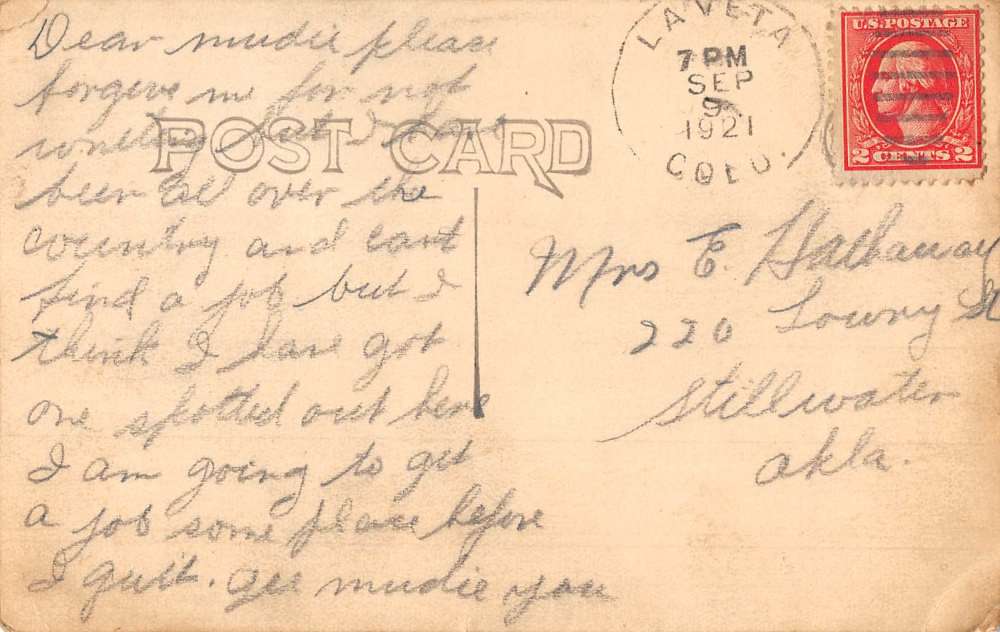 Dear mudie please
forgive me for not
writting but I have
been all over the
country and cant
find a job but I
think I have got
one spotted out here
I am going to get
a job some place before
I quit. Gee mudie you
POST CARD
LA VETA
7 PM
SEP
9
1921
COLO.
U.S. POSTAGE
2 CENTS 2
Mrs E. Hathaway
220 Lowry St
Stillwater
Okla.